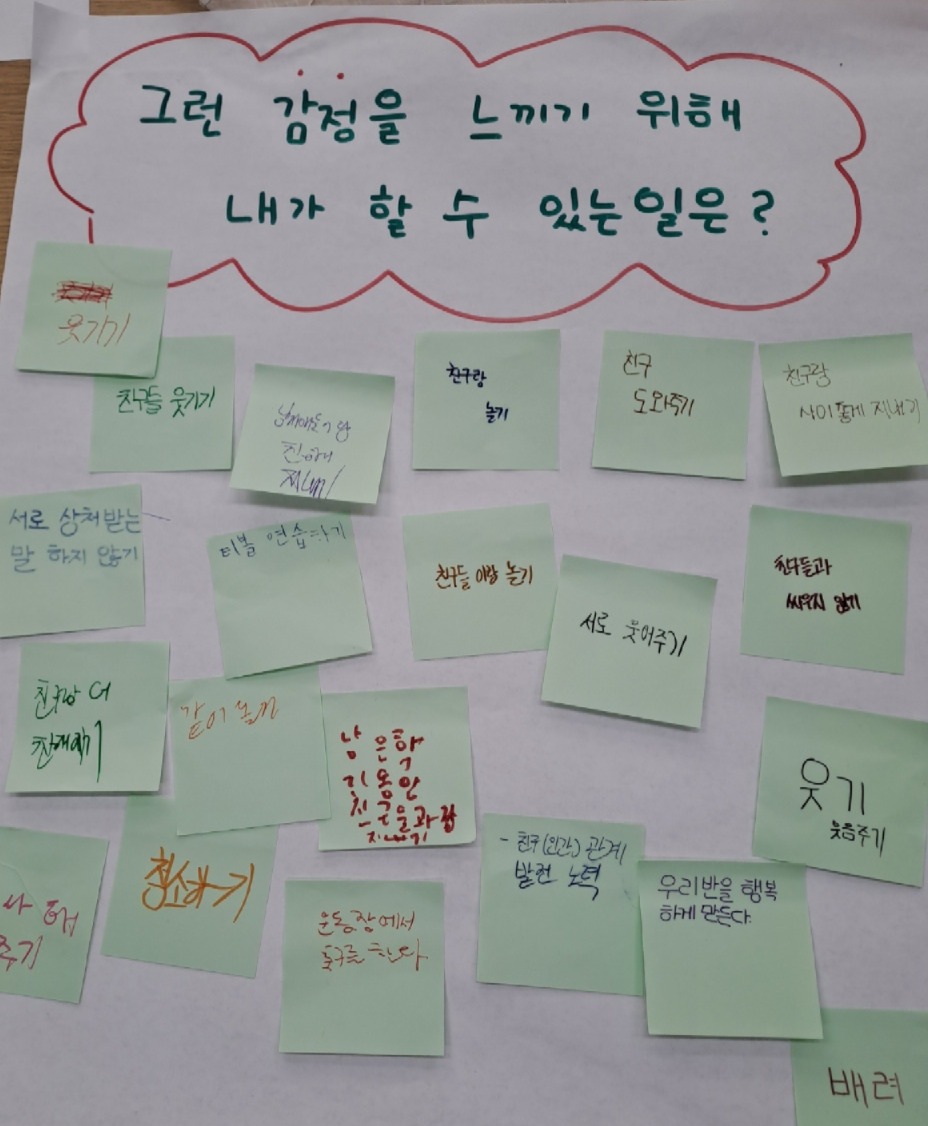 그런 감정을 느끼기 위해
내가 할 수 있는일은?
웃기기
친구들 웃기기
친하게
지내기
친구랑
놀기
친구
도와주기
친구랑
사이좋게 지내기
서로 상처받는
말 하지 않기
티볼 연습하기
친구들이랑 놀기
서로 웃어주기
친구들과
싸우지 않기
친구랑 더
같이 놀기
친구들과잘
지내기
웃기
웃음주기
해
주기
청소하기
운동장에서
한다
- 친구(인간) 관계
발전 노력
우리반을 행복
하게 만든다.
배려